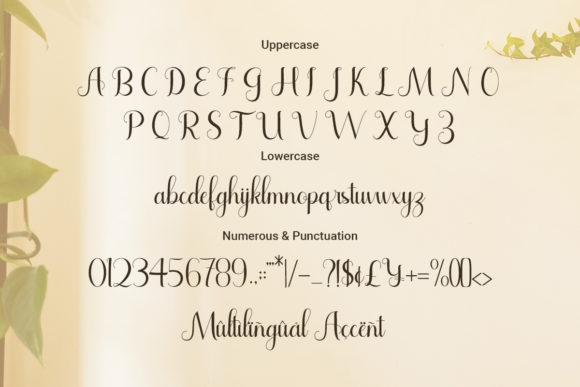 Uppercase
A B C D E F G H I J K L M N O
P Q R S T U V W X Y Z
Lowercase
abcdefghijklmnopqrstuvwxyz
Numerous & Punctuation
0123456789.,:;"'*|/-_?!$¢£¥+=%00<>
Mûltîlïñgûál Àççëñt